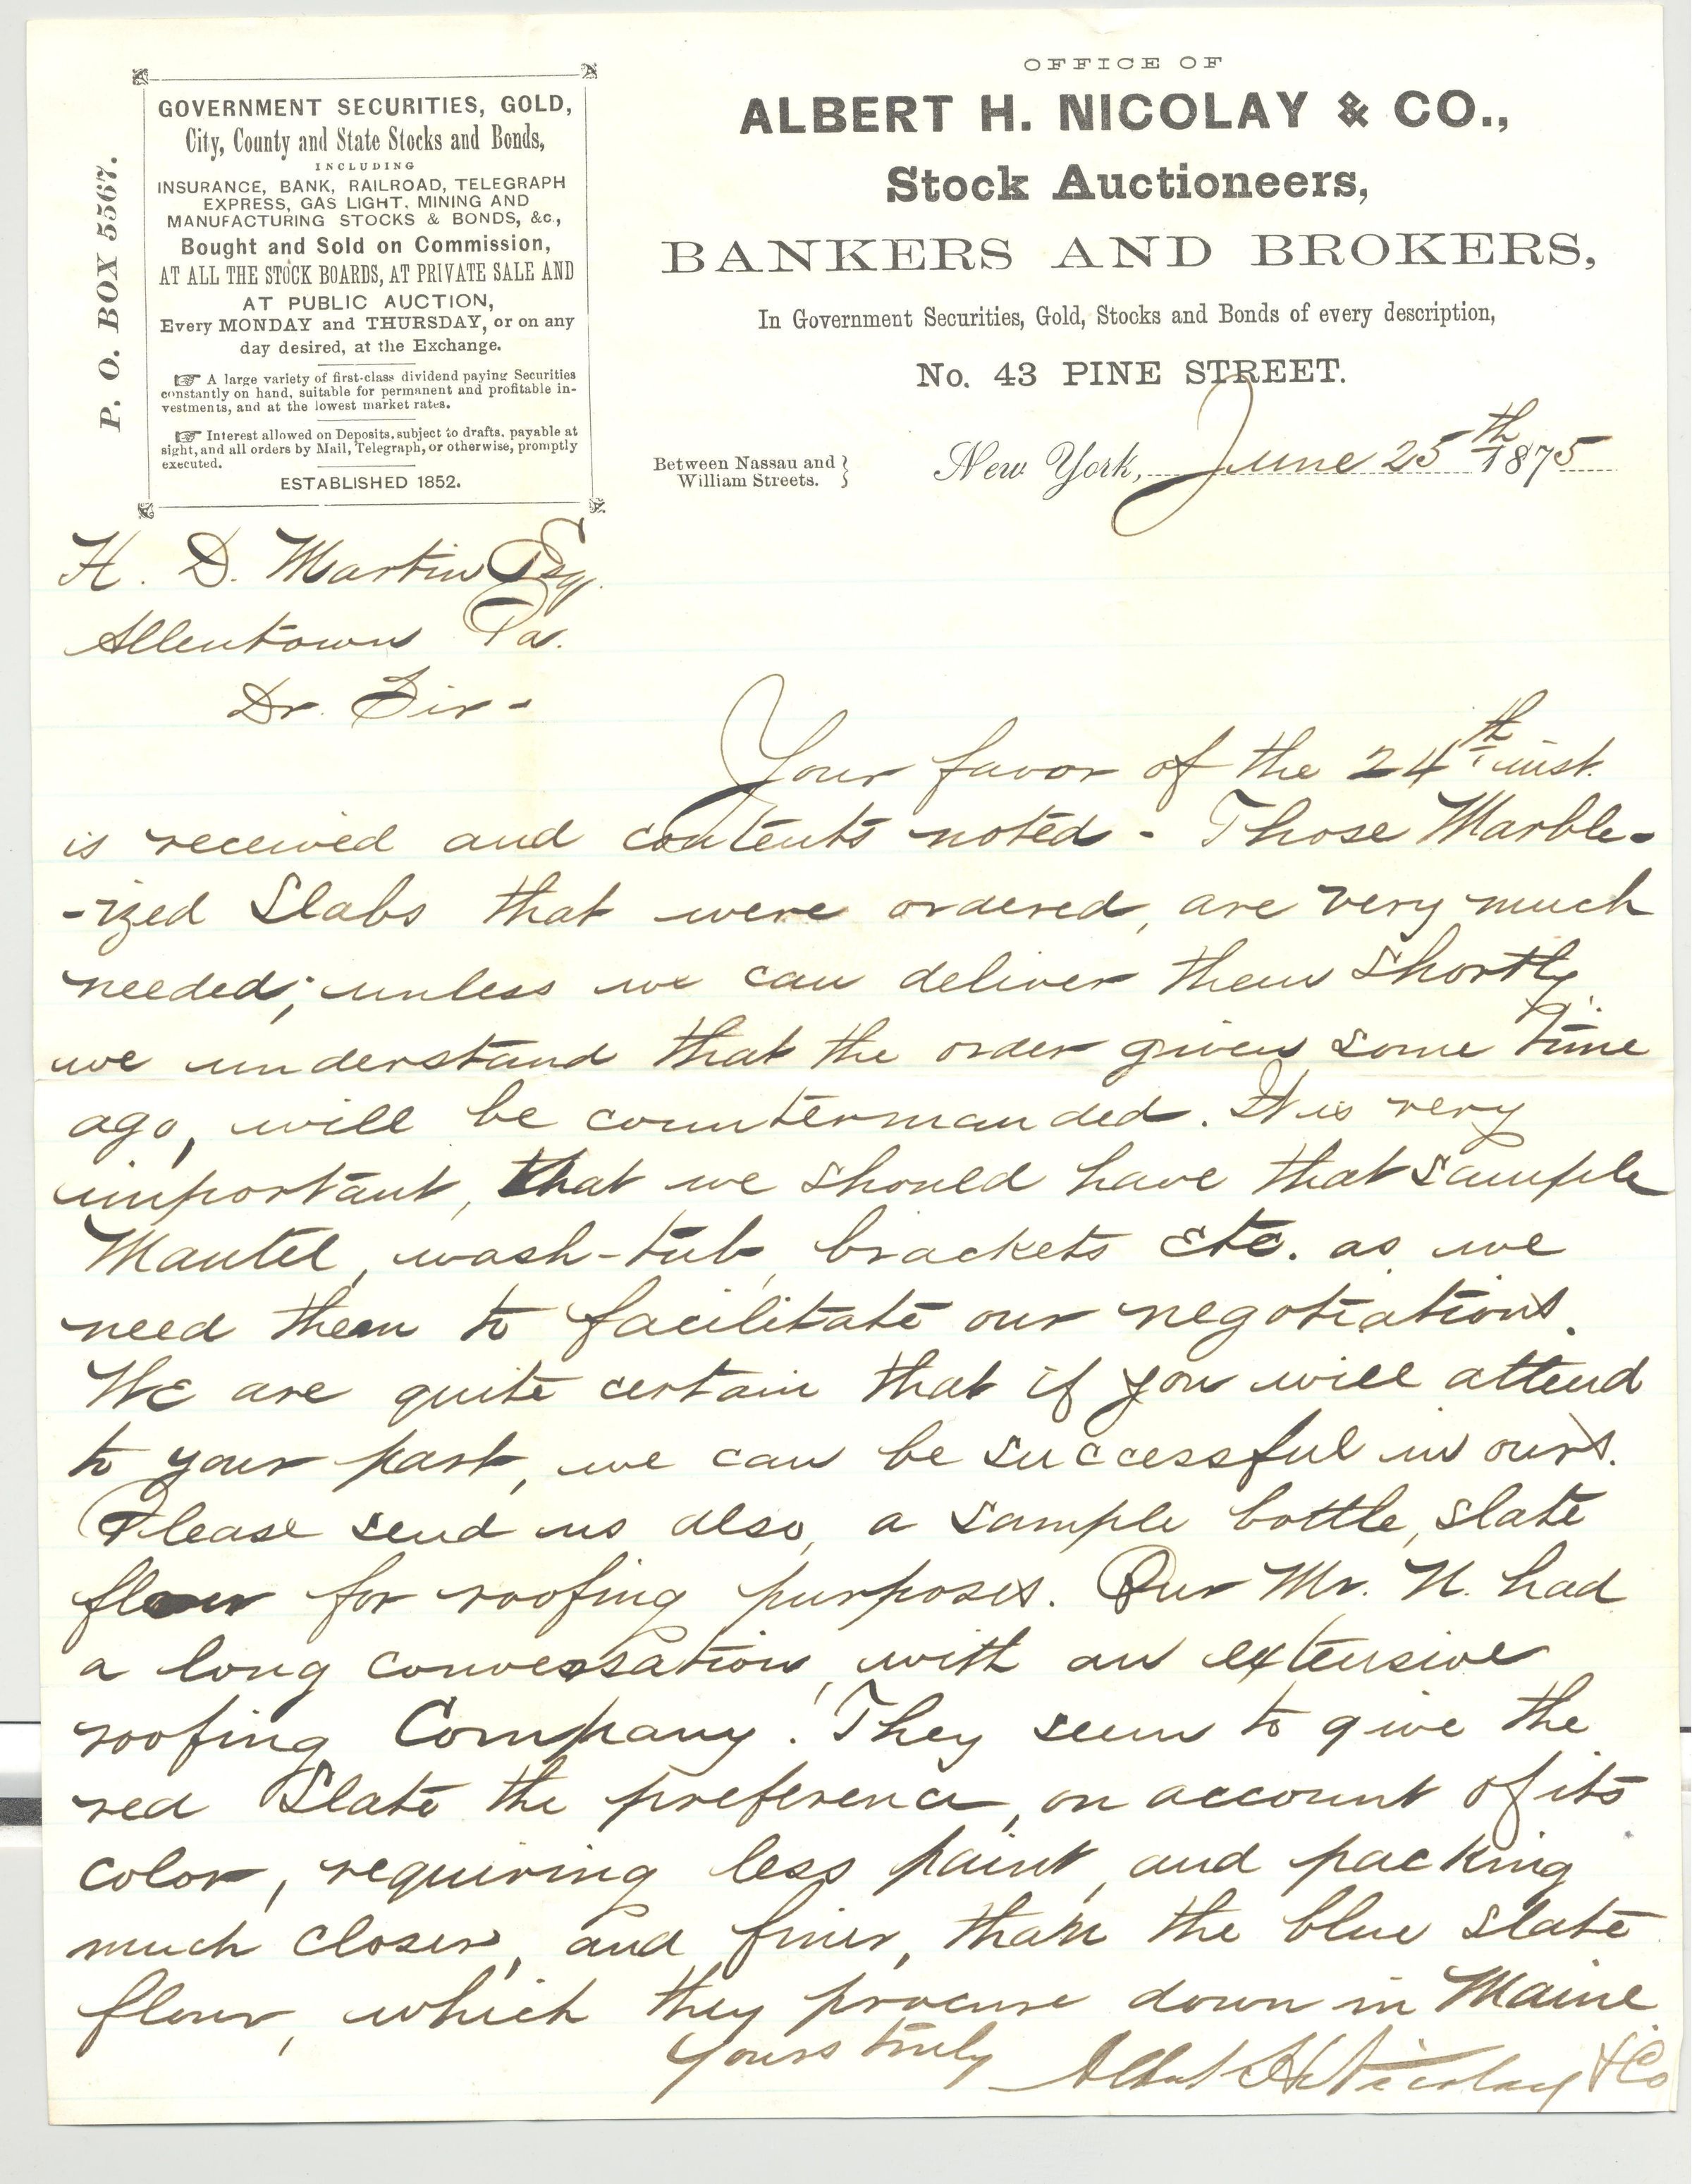 P. O. BOX 5567.
GOVERNMENT SECURITIES, GOLD,
City, County and State Stocks and Bonds,
INCLUDING
INSURANCE, BANK, RAILROAD, TELEGRAPH
EXPRESS, GAS LIGHT, MINING AND
MANUFACTURING STOCKS & BONDS, &c.,
Bought and Sold on Commission,
AT ALL THE STOCK BOARDS, AT PRIVATE SALE AND
AT PUBLIC AUCTION,
Every MONDAY and THURSDAY, or on any
day desired, at the Exchange.
☞ A large variety of first-class dividend paying Securities
constantly on hand, suitable for permanent and profitable in-
vestments, and at the lowest market rates.
☞ Interest allowed on Deposits, subject to drafts, payable at
sight, and all orders by Mail, Telegraph, or otherwise, promptly
executed.
ESTABLISHED 1852.
OFFICE OF
ALBERT H. NICOLAY & CO.,
Stock Auctioneers,
BANKERS AND BROKERS,
In Government Securities, Gold, Stocks and Bonds of every description,
No. 43 PINE STREET.
Between Nassau and
William Streets.
New York, June 25th 1875
H. D. Martin Esq.
Allentown Pa.
Dr. Sir -
Your favor of the 24th inst.
is received and contents noted - Those Marble-
-ized Slabs that were ordered, are very much
needed; unless we can deliver them shortly,
we understand that the order given some time
ago, will be countermanded. It is very
important, that we should have that sample
Mantel, wash-tub, brackets etc. as we
need them to facilitate our negotiations.
We are quite certain that if you will attend
to your part, we can be successful in ours.
Please send us also, a sample bottle, slate
flour for roofing purposes. Our Mr. N. had
a long conversation, with an extensive
roofing Company. They seem to give the
red Slate the preference, on account of its
color, requiring less paint, and packing
much closer, and finer, than the blue slate
flour, which they procure down in Maine.
Yours truly Albert H Nicolay & Co